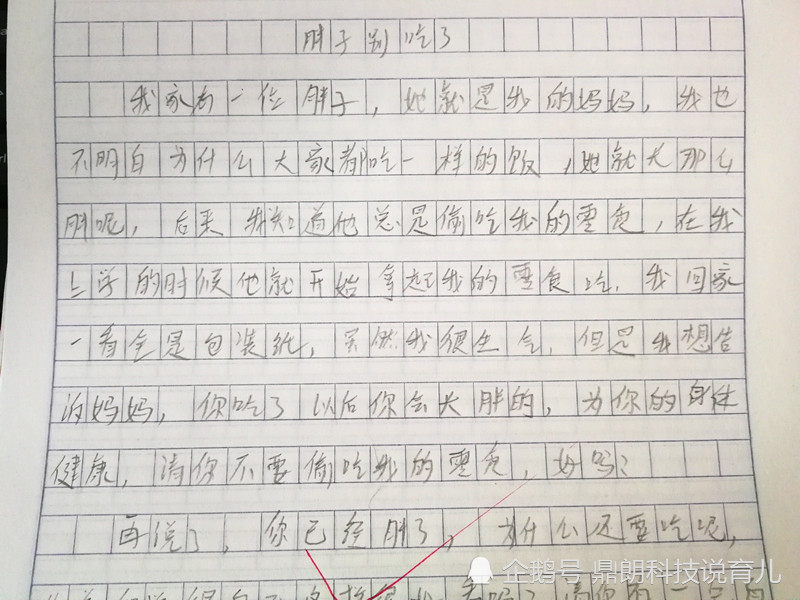 胖子别吃了
我家有一位胖子，她就是我的妈妈，我也
不明白为什么大家都吃一样的饭，她就长那么
胖呢，后来我知道他总是偷吃我的零食，在我
上学的时候他就开始拿起我的零食吃，我回家
一看全是包装纸，虽然我很生气，但是我想告
诉妈妈，你吃了以后你会长胖的，为你的身体
健康，请你不要偷吃我的零食，好吗？
再说了，你已经胖了，为什么还要吃呢，
企鹅号 鼎朗科技说育儿